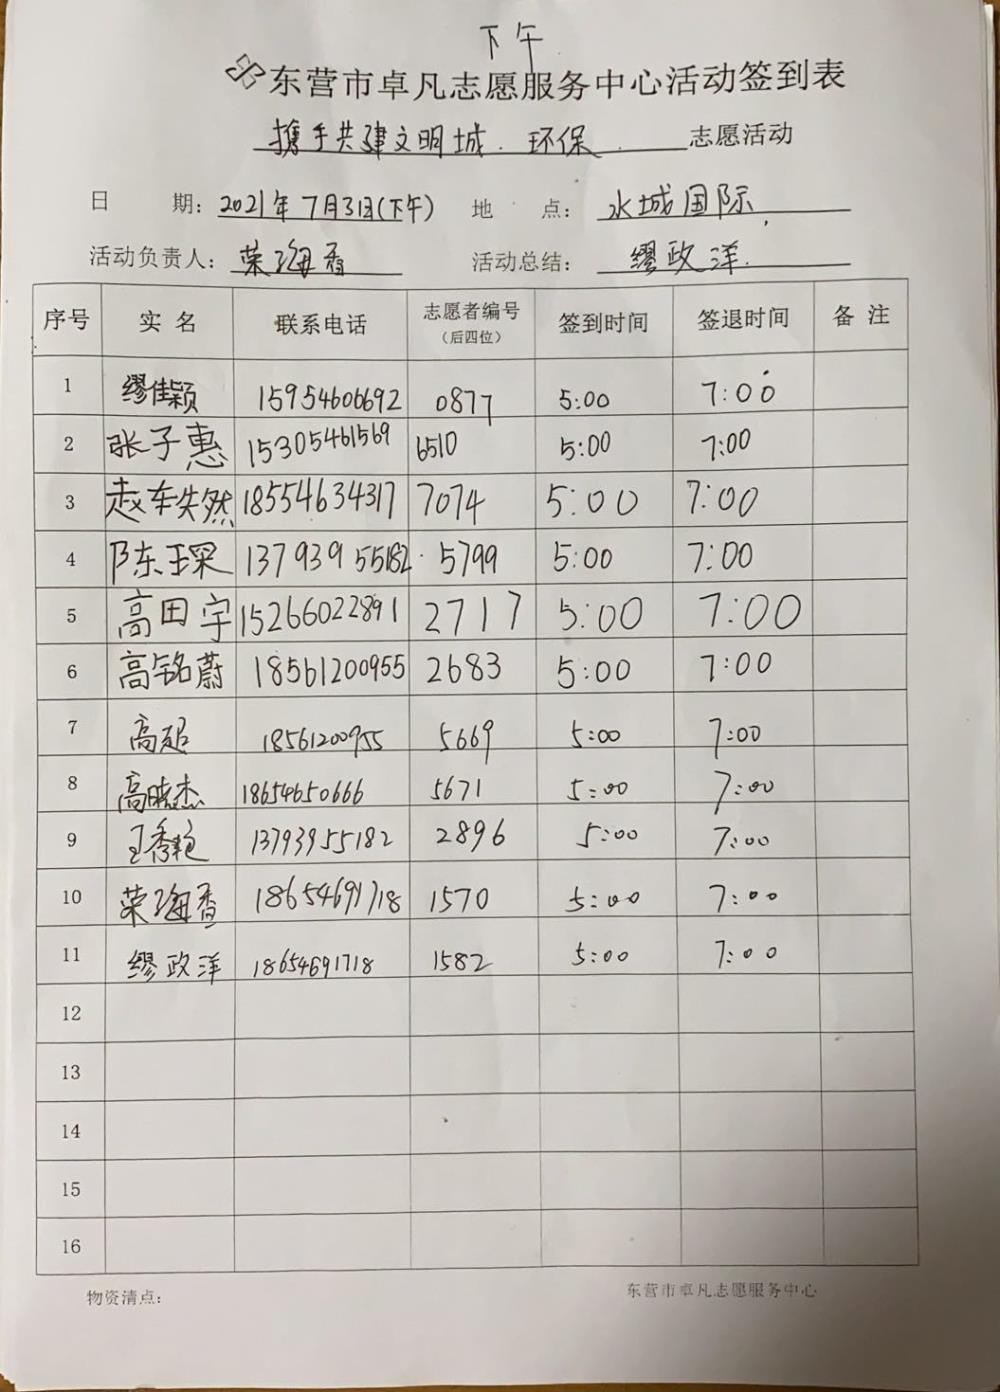 下午
东营市卓凡志愿服务中心活动签到表
携手共建文明城. 环保. 志愿活动
日 期: 2021年7月31日(下午) 地 点: 水城国际
活动负责人: 荣海香 活动总结: 缪政洋.
序号 实名 联系电话 志愿者编号(后四位) 签到时间 签退时间 备注
1 缪佳颖 15954606692 0877 5:00 7:00
2 张子惠 15305461569 6510 5:00 7:00
3 赵轶然 18554634317 7074 5:00 7:00
4 陈玉琛 13793955182 5799 5:00 7:00
5 高田宇 15266022891 2717 5:00 7:00
6 高铭蔚 18561200955 2683 5:00 7:00
7 高超 18561200955 5669 5:00 7:00
8 高晓杰 18654650666 5671 5:00 7:00
9 王秀艳 13793955182 2896 5:00 7:00
10 荣海香 18654691718 1570 5:00 7:00
11 缪政洋 18654691718 1582 5:00 7:00
12
13
14
15
16
物资清点: 东营市卓凡志愿服务中心